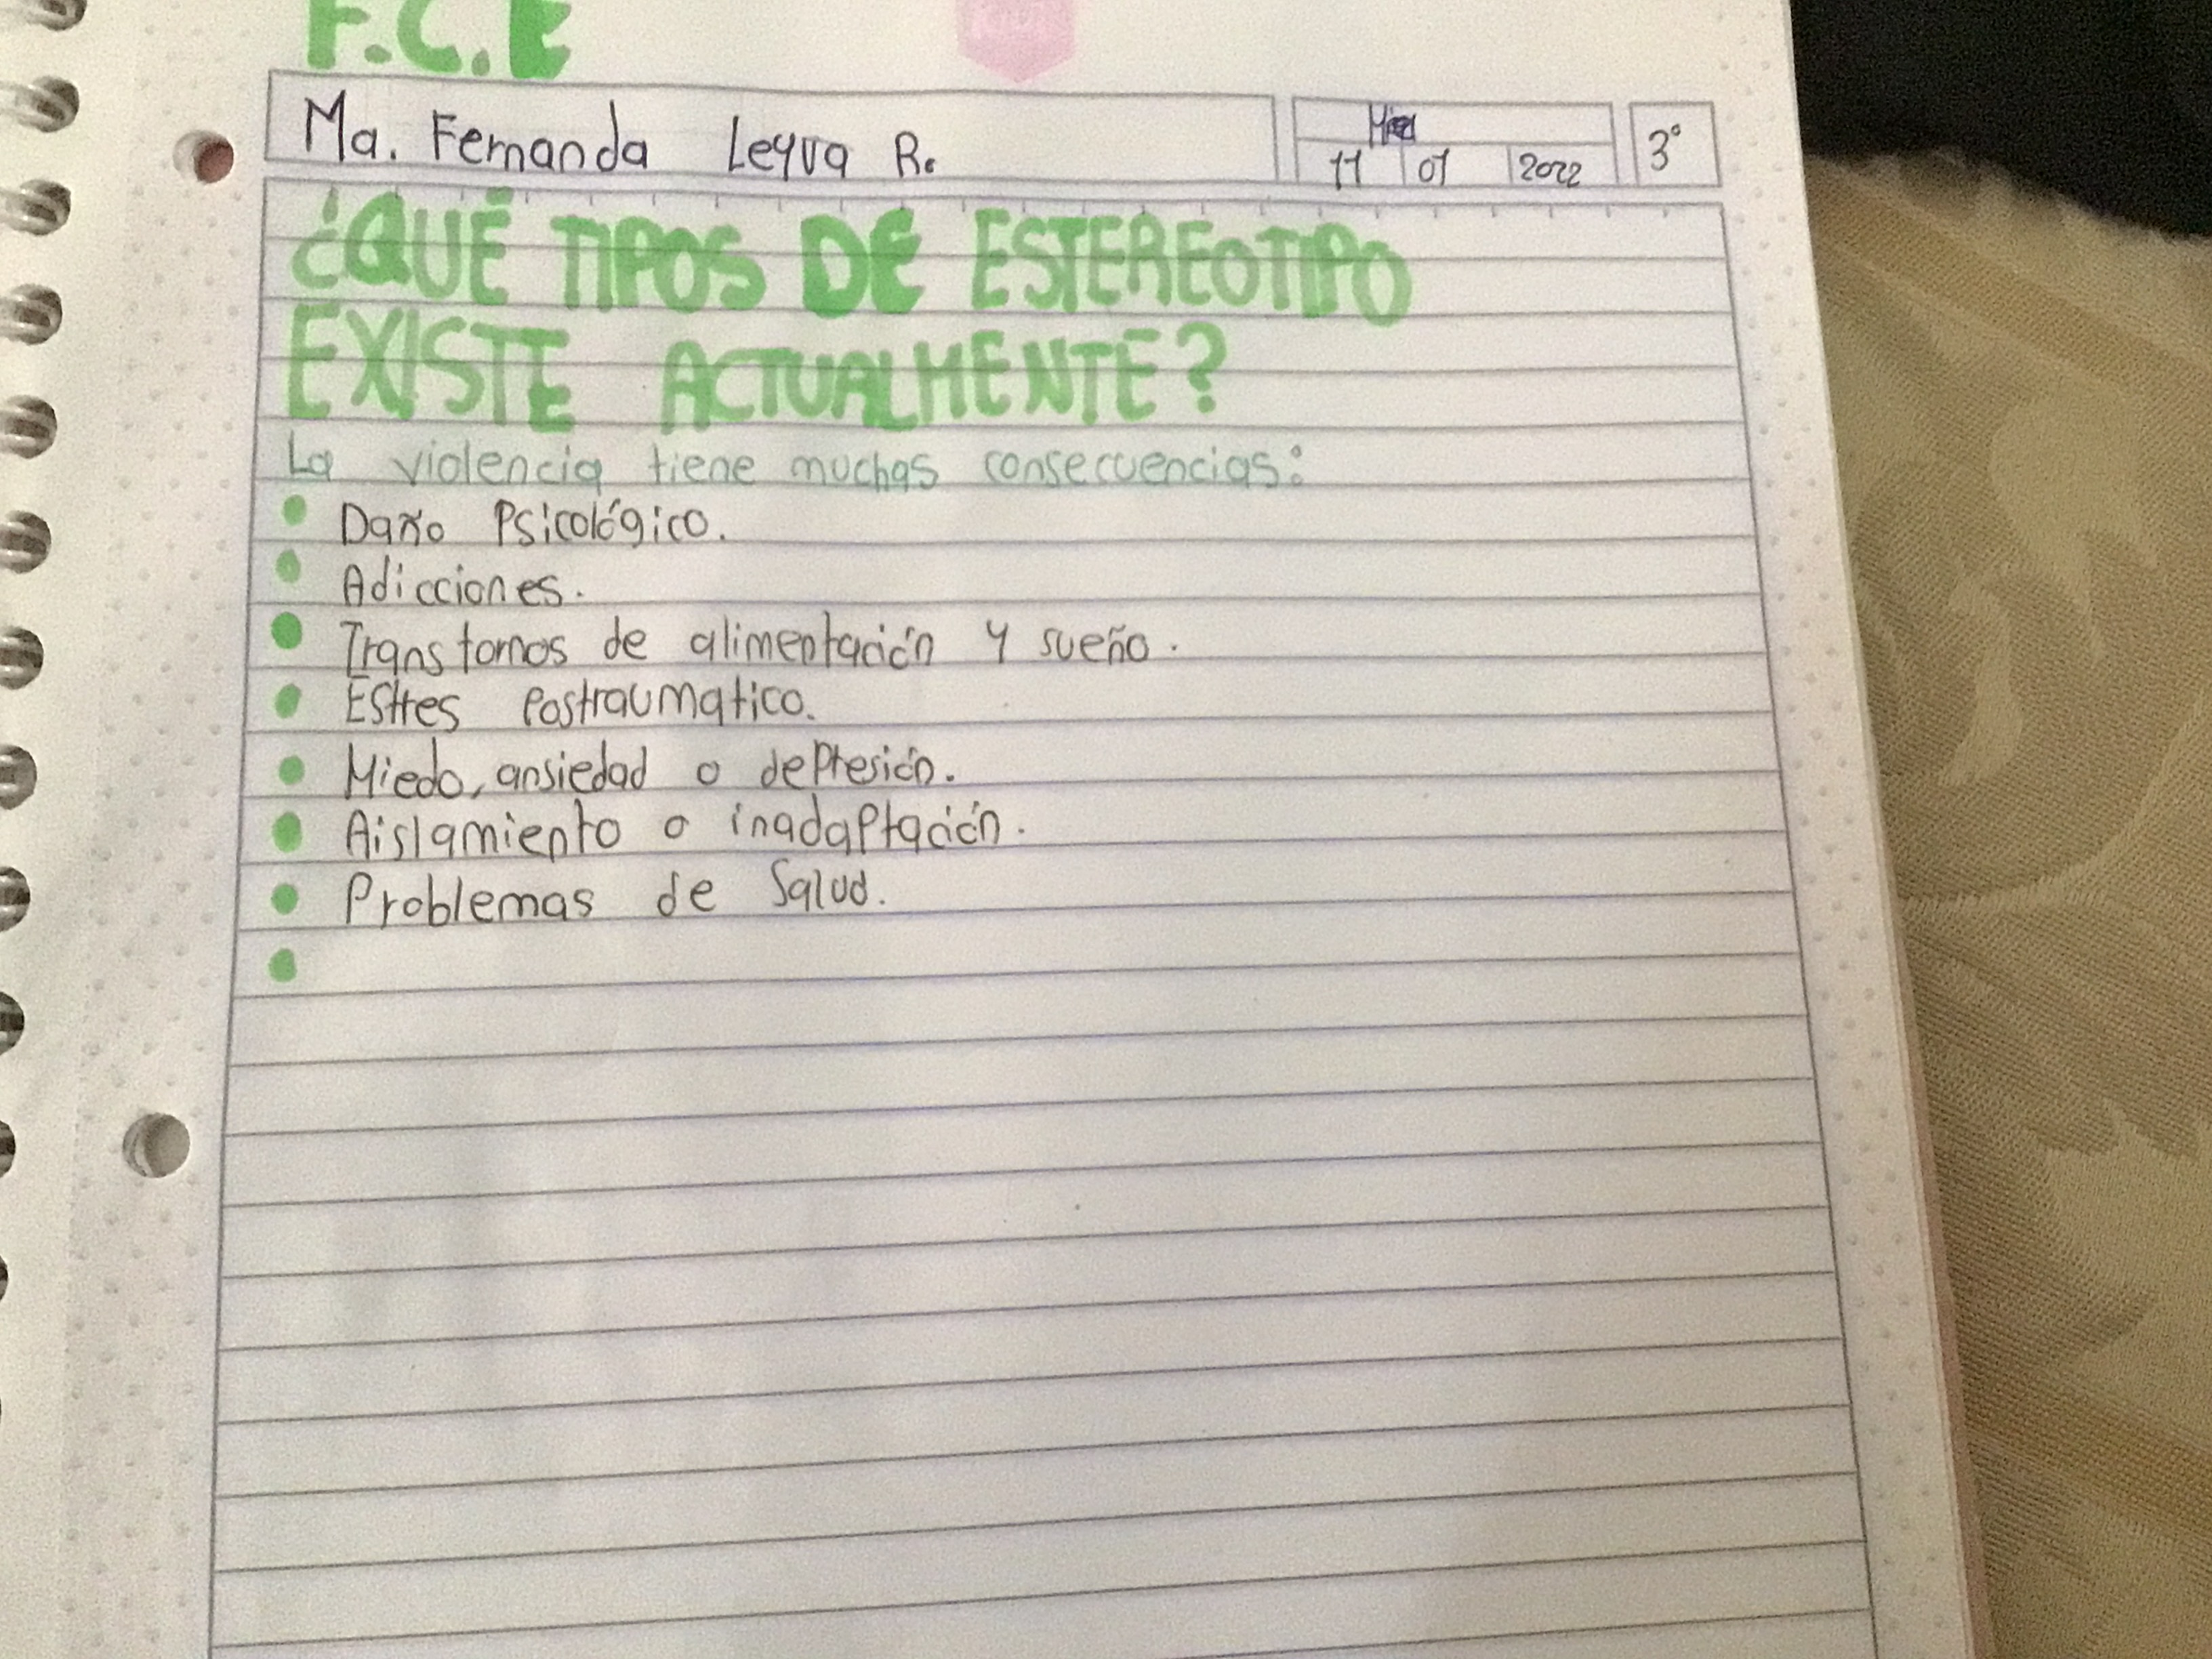 F.C.E
Ma. Fernanda Leyva R.
11 01 2022 3°
¿QUÉ TIPOS DE ESTEREOTIPO
EXISTE ACTUALMENTE?
La violencia tiene muchas consecuencias:
Daño Psicológico.
Adicciones.
Transtornos de alimentación y sueño.
Estres Postraumatico.
Miedo, ansiedad o depresión.
Aislamiento o inadaptación.
Problemas de Salud.